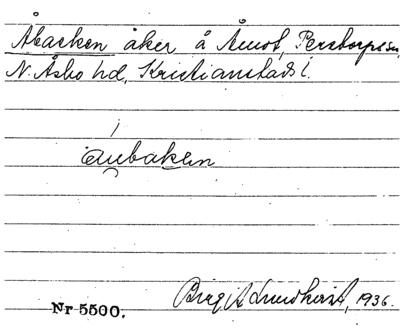 Åbacken åker å Åmot, Perstorps sn,
N. Åsbo hd, Kristianstads l.
Nr 5500.
Birgit Lundkvist, 1936.